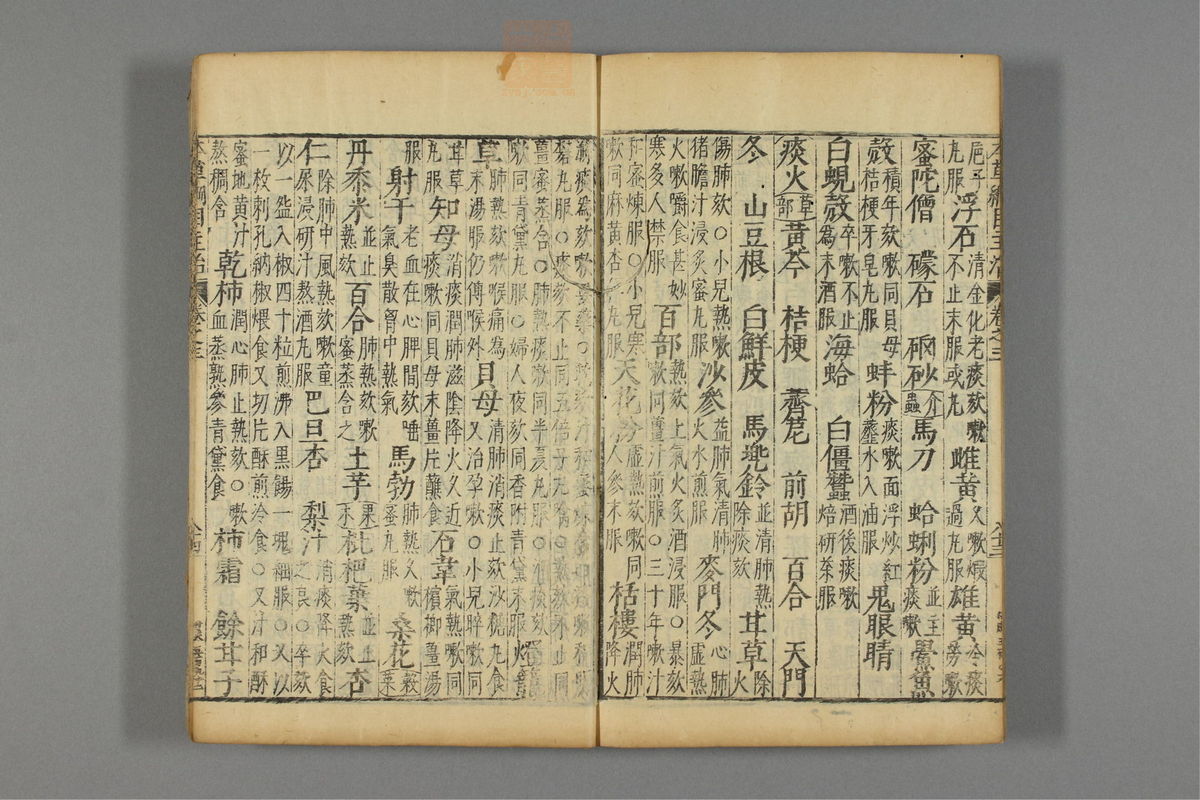 浮石清金化老痰欬嗽
丸服不止末服或丸雌黃久嗽煅過丸服雄黃冷痰勞嗽
蜜陀僧 礞石 硇砂介蟲馬刀 蛤蜊粉並主痰嗽鱟魚
殼積年欬嗽同貝母桔梗牙皂丸服蚌粉痰嗽面浮炒紅虀水入油服鬼眼睛
白蜆殼卒嗽不止為末酒服海蛤 白僵蠶酒後痰嗽焙研茶服
痰火草部黃芩 桔梗 薺苨 前胡 百合 天門
冬 山豆根 白鮮皮 馬兜鈴並清肺熱除痰欬甘草除火
傷肺欬○小兒熱嗽猪膽汁浸炙蜜丸服沙參益肺氣清肺火水煎服麥門冬心肺虛熱
火嗽嚼食甚妙寒多人禁服百部熱欬上氣火炙酒浸服○暴欬嗽同薑汁煎服○三十年嗽汁
和蜜煉服○小兒寒嗽同麻黃杏仁丸服天花粉虛熱欬嗽同人參末服栝樓潤肺降火
丸服○痰欬不止同五倍子丸噙
薑蜜蒸含○肺熱痰嗽同半夏丸服
嗽同青黛丸服○婦人夜欬同香附青黛末服燈
草肺熱欬嗽喉痛為末湯服仍傅喉外貝母清肺消痰止欬沙糖丸食又治孕嗽○小兒晬嗽同
甘草丸服知母消痰潤肺滋陰降火久近痰嗽同貝母末薑片蘸食石韋氣熱嗽同檳榔薑湯
服射干老血在心脾間欬唾氣臭散胷中熱氣馬勃肺熱久嗽蜜丸服桑花穀菜
丹黍米並止熱欬百合肺熱欬嗽蜜蒸含之土芋果木枇杷葉並止欬杏
仁除肺中風熱欬嗽童尿浸研汁熬酒丸服巴旦杏 梨汁消痰降火食之良○卒欬
以一盌入椒四十粒煎沸入黑餳一塊細服○又以一枚刺孔納椒煨食又切片酥煎冷食○又汁和酥
蜜地黃汁熬稠含乾柿潤心肺止熱欬○嗽血蒸熟摻青黛食柿霜 餘甘子